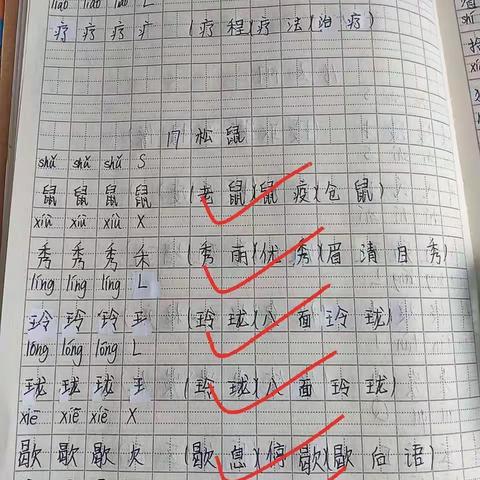 liáo liáo liáo L
疗 疗 疗 疒 (疗 程)(疗 法)(治 疗)
17 松 鼠
shǔ shǔ shǔ S
鼠 鼠 鼠 鼠 (老 鼠)(鼠 疫)(仓 鼠)
xiù xiù xiù X
秀 秀 秀 禾 (秀 丽)(优 秀)(眉 清 目 秀)
líng líng líng L
玲 玲 玲 王 (玲 珑)(八 面 玲 珑)
lóng lóng lóng L
珑 珑 珑 王 (玲 珑)(八 面 玲 珑)
xiē xiē xiē X
歇 歇 歇 欠 (歇 息)(停 歇)(歇 后 语)